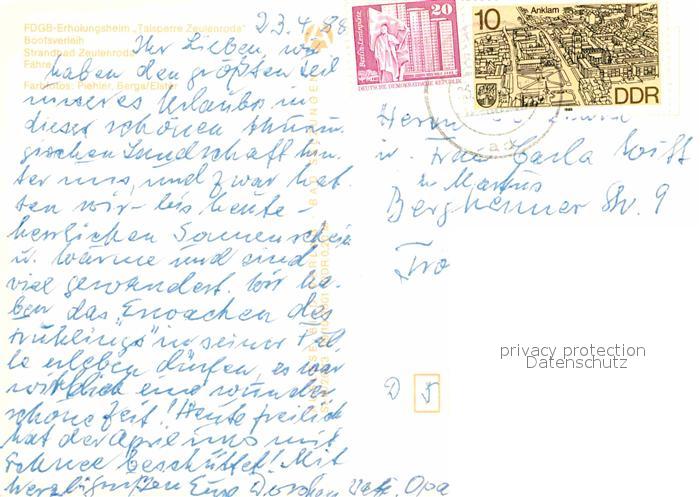 FDGB-Erholungsheim „Talsperre Zeulenroda"
Bootsverleih
Strandbad Zeulenroda
Fähre
Farbfotos: Piehler, Berga/Elster
23.4.88
Ihr Lieben, wir
haben den größten Teil
unseres Urlaubs in
dieser schönen thürin-
gischen Landschaft hin-
ter uns, und zwar hat-
ten wir - bis heute -
herrlichen Sonnenschein
u. Wärme und sind
viel gewandert. Wir ha-
ben das "Erwachen des
Frühlings" in seiner Fül-
le erleben dürfen, es war
wirklich eine wunder-
schöne Zeit! Heute freilich
hat der April uns mit
Schnee beschüttet! Mit
herzl. Grüßen Eure Opa
Berlin-Leninplatz
20
DEUTSCHE DEMOKRATISCHE REPUBLIK
10
Anklam
DDR
Herrn
u. Frau Carla
u. Markus
Bergheimer Str. 9
D 5
privacy protection
Datenschutz